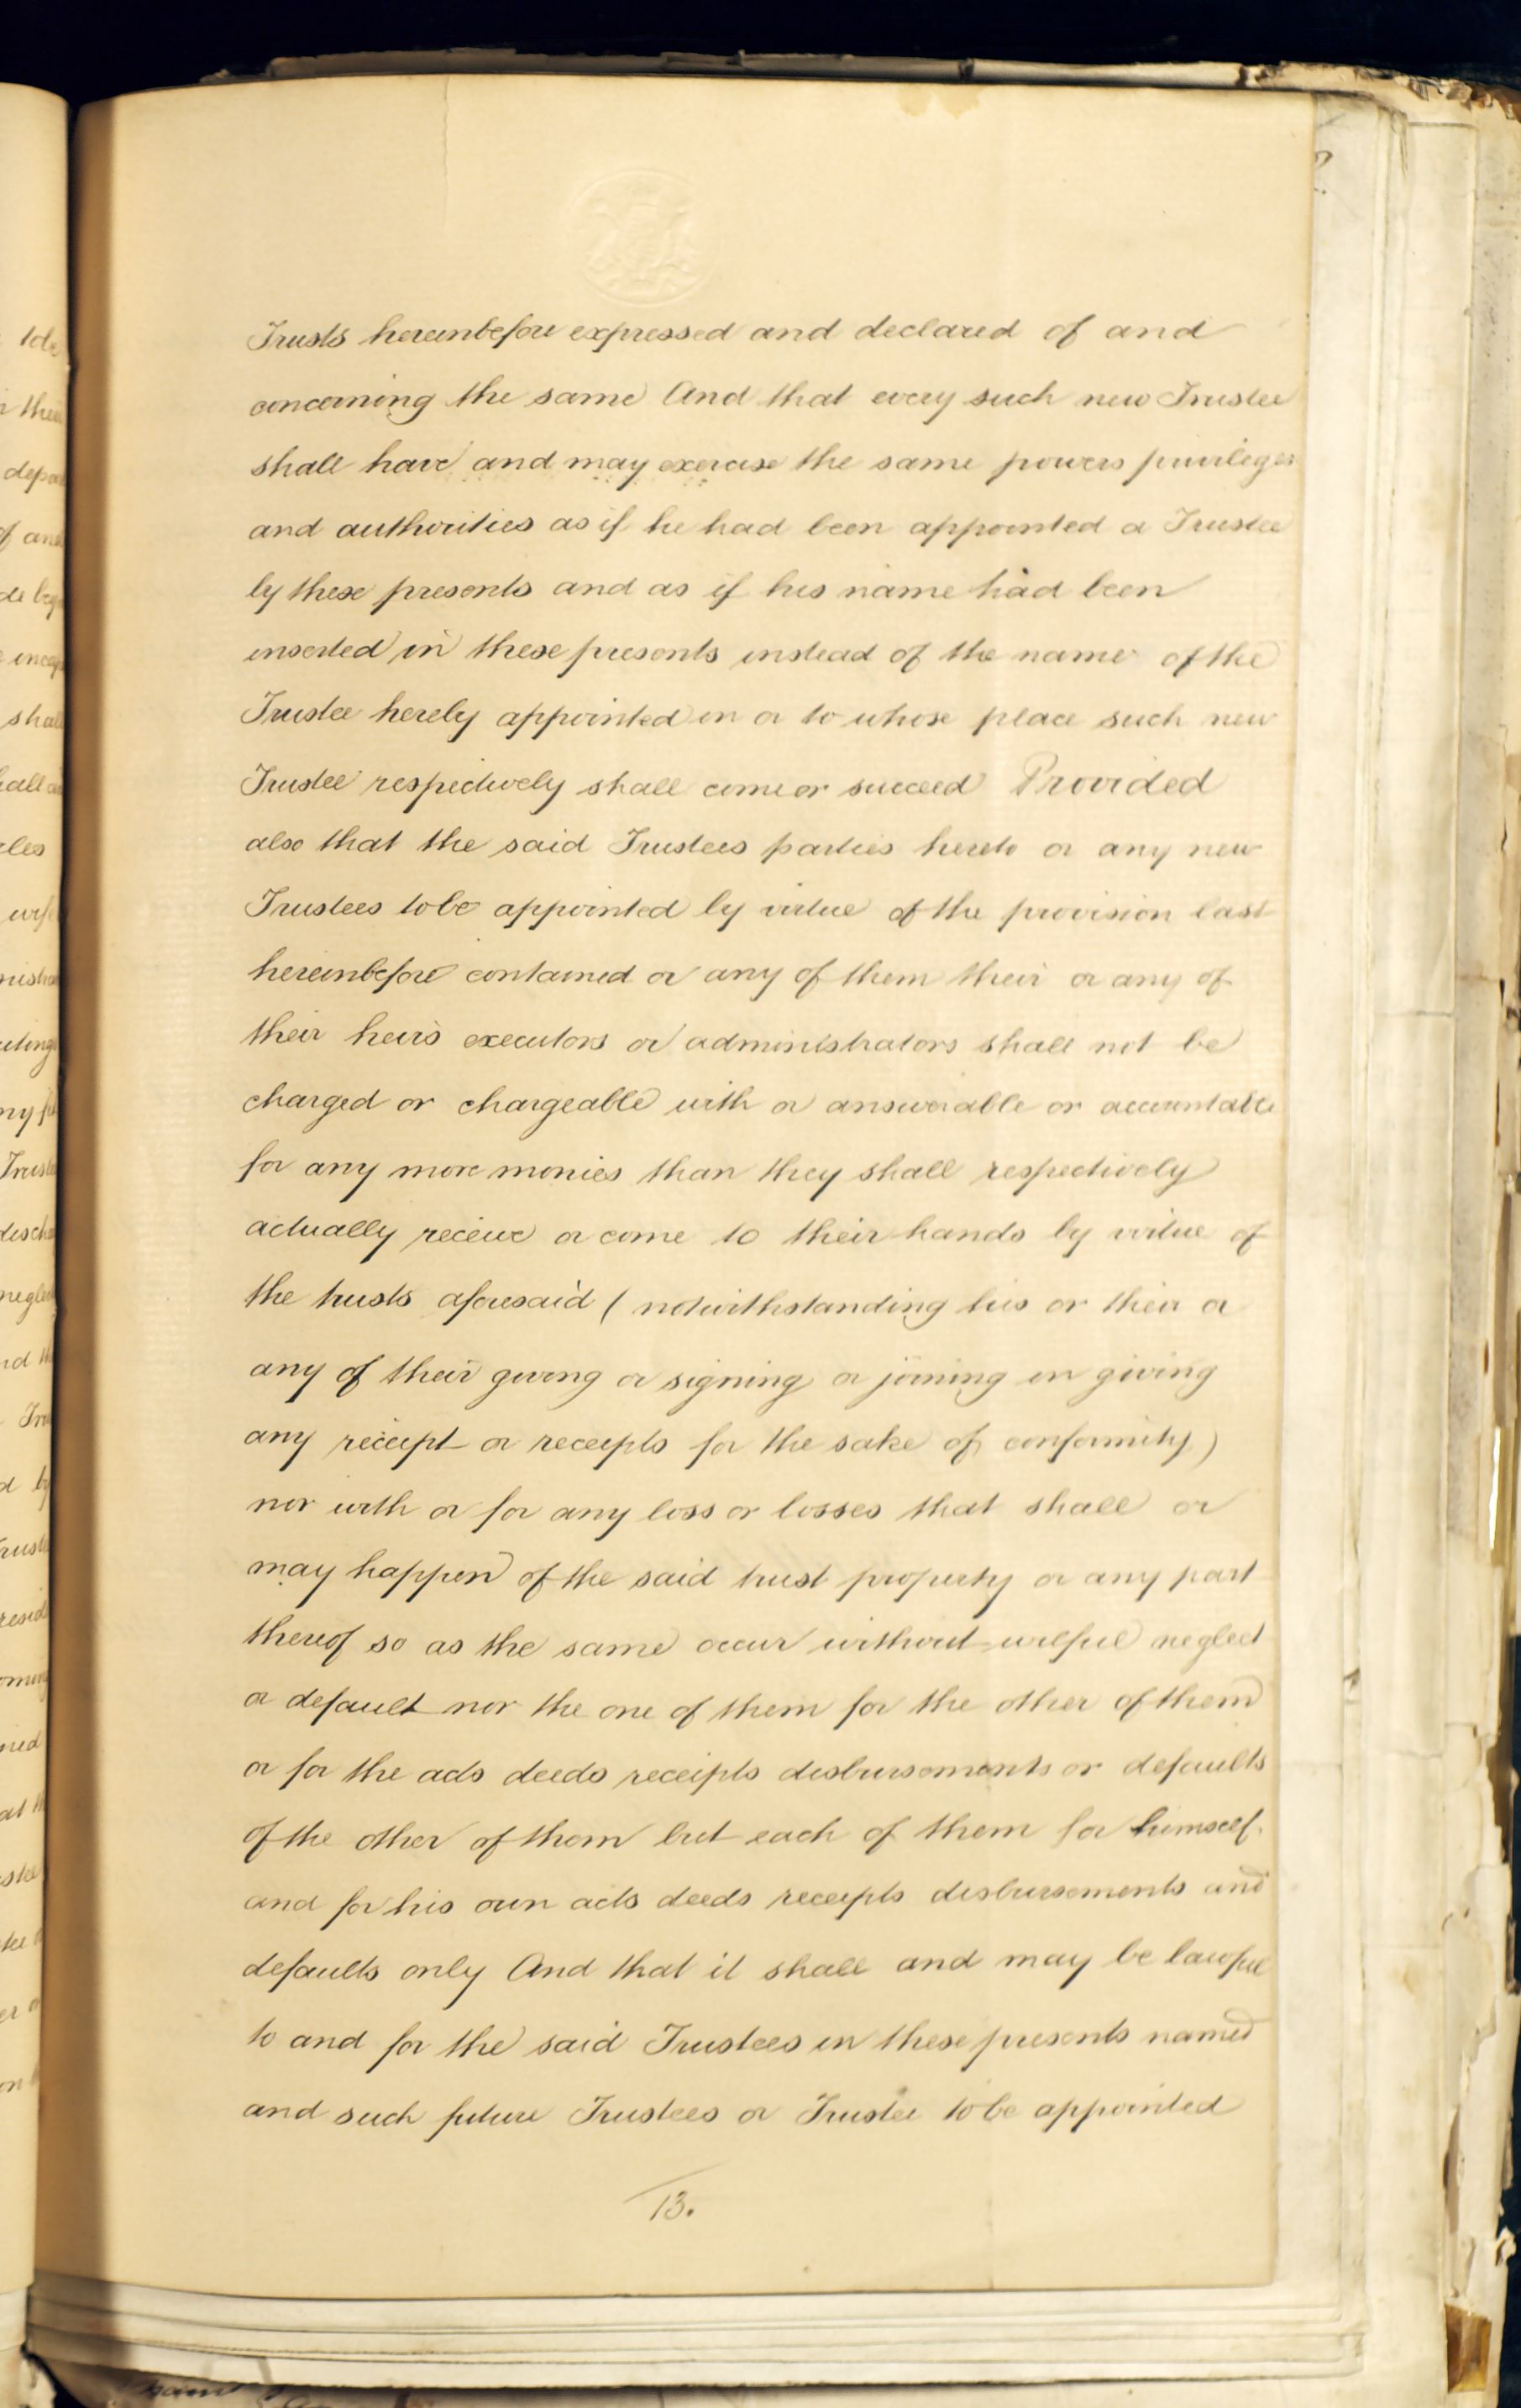 Trusts hereinbefore expressed and declared of and
concerning the same And that every such new Trustee
shall have and may exercise the same powers privileges
and authorities as if he had been appointed a Trustee
by these presents and as if his name had been
inserted in these presents instead of the name of the
Trustee hereby appointed in or to whose place such new
Trustee respectively shall come or succeed Provided
also that the said Trustees parties hereto or any new
Trustees to be appointed by virtue of the provision last
hereinbefore contained or any of them their or any of
their heirs executors or administrators shall not be
charged or chargeable with or answerable or accountable
for any more monies than they shall respectively
actually receive or come to their hands by virtue of
the trusts aforesaid (notwithstanding his or their or
any of their giving or signing or joining in giving
any receipt or receipts for the sake of conformity)
nor with or for any loss or losses that shall or
may happen of the said trust property or any part
thereof so as the same occur without wilful neglect
or default nor the one of them for the other of them
or for the acts deeds receipts disbursements or defaults
of the other of them but each of them for himself
and for his own acts deeds receipts disbursements and
defaults only And that it shall and may be lawful
to and for the said Trustees in these presents named
and such future Trustees or Trustee to be appointed
13.